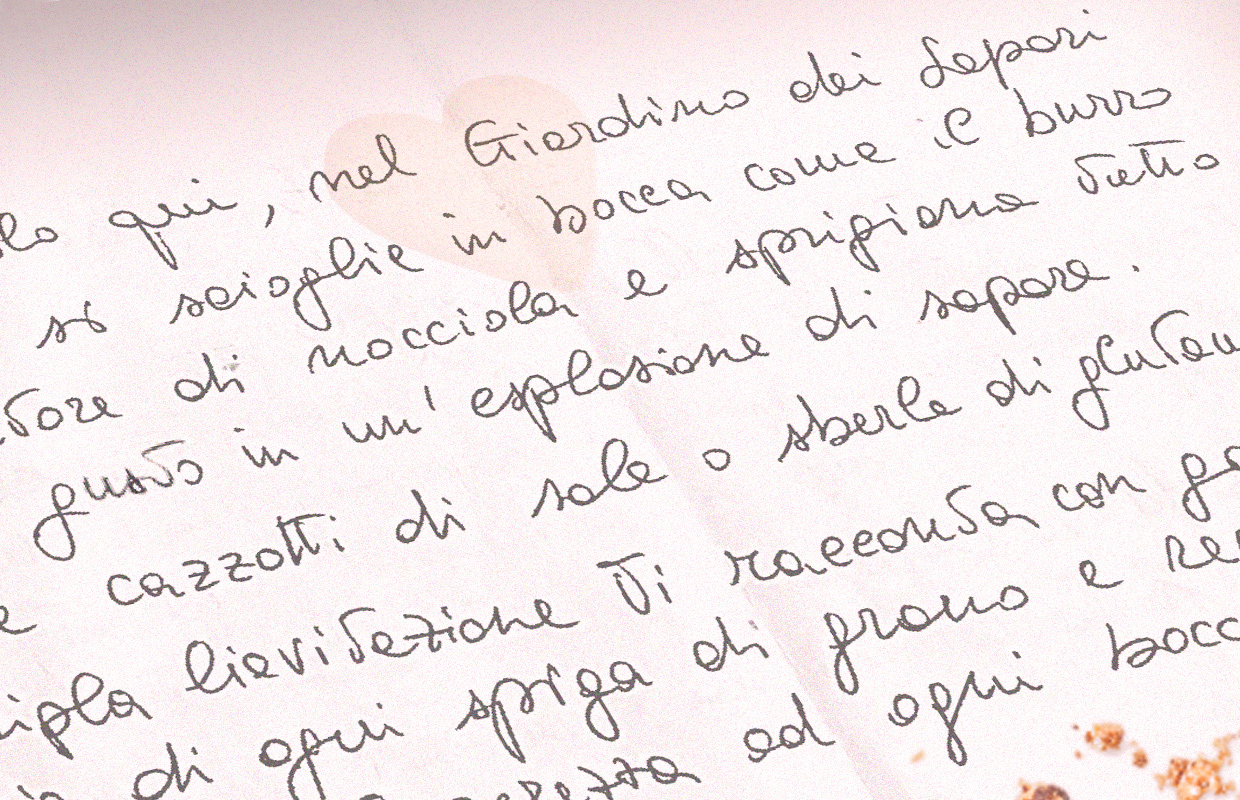 qui, nel Giardino dei Sapori
si scioglie in bocca come il burro
di nocciola e sprigiona tutto
gusto in un'esplosione di sapore.
e cazzotti di sale o sberle di glutam
ipla lievitazione ti racconta con
di ogni spriga di grano e
ad ogni bocc